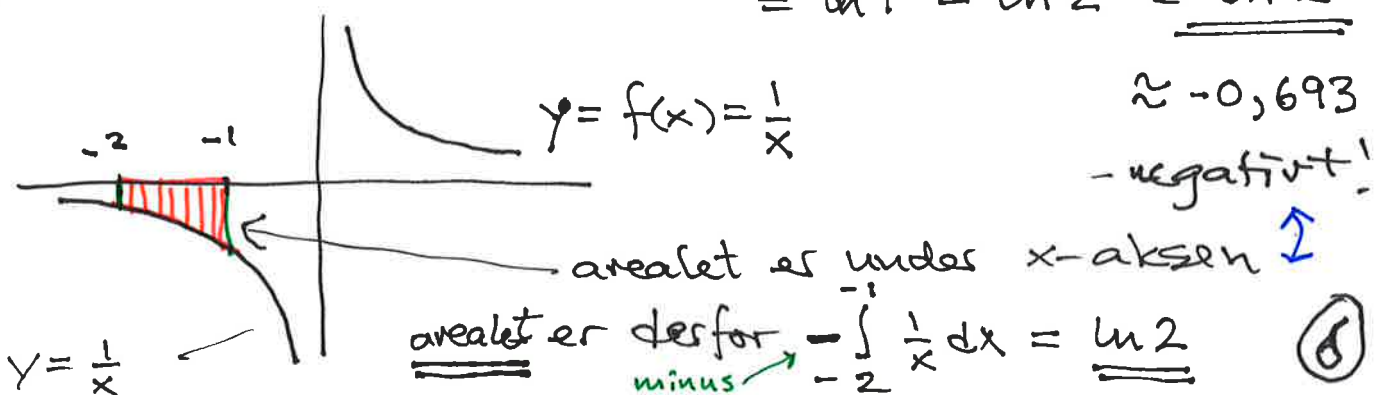 = ln 1 - ln 2 =
≈ -0,693
y = f(x) = 1/x
-2 -1
- negativt!
arealet er under x-aksen
arealet er derfor - ∫_{-2}^{-1} 1/x dx = ln 2
minus
y = 1/x
6